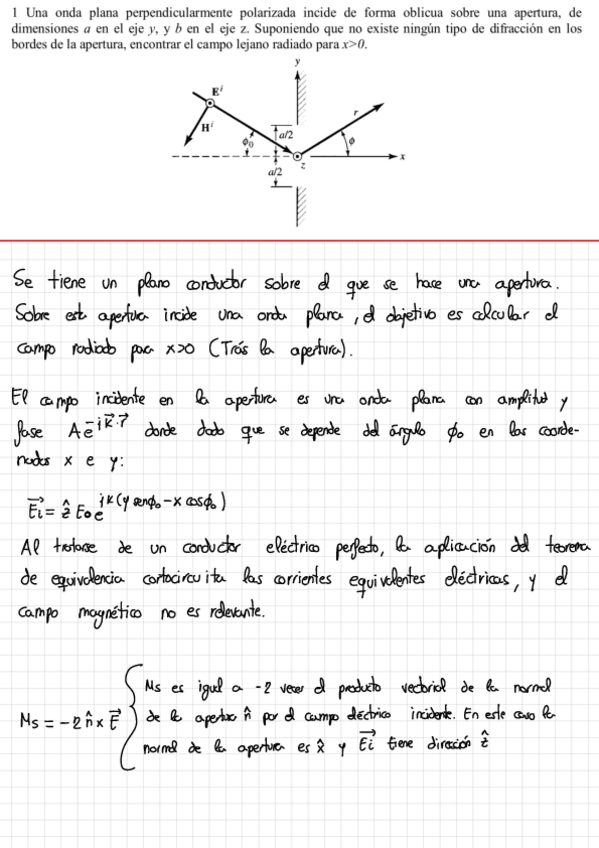 1 Una onda plana perpendicularmente polarizada incide de forma oblicua sobre una apertura, de
dimensiones a en el eje y, y b en el eje z. Suponiendo que no existe ningún tipo de difracción en los
bordes de la apertura, encontrar el campo lejano radiado para x>0.
y
Eⁱ
r
Hⁱ
a/2
ϕ₀
ϕ
x
z
a/2
Se tiene un plano conductor sobre el que se hace una apertura.
Sobre esta apertura incide una onda plana, el objetivo es calcular el
campo radiado para x>0 (Trás la apertura).
El campo incidente en la apertura es una onda plana con amplitud y
fase A e^{-j k⃗·r⃗} donde dado que se depende del ángulo ϕ₀ en las coorde-
nadas x e y:
E⃗i = ẑ E₀ e^{jk(y senϕ₀ - x cosϕ₀)}
Al tratarse de un conductor eléctrico perfecto, la aplicación del teorema
de equivalencia cortocircuita las corrientes equivalentes eléctricas, y el
campo magnético no es relevante.
Ms = -2 n̂ x E⃗
Ms es igual a -2 veces el producto vectorial de la normal
de la apertura n̂ por el campo eléctrico incidente. En este caso la
normal de la apertura es x̂ y E⃗i tiene dirección ẑ